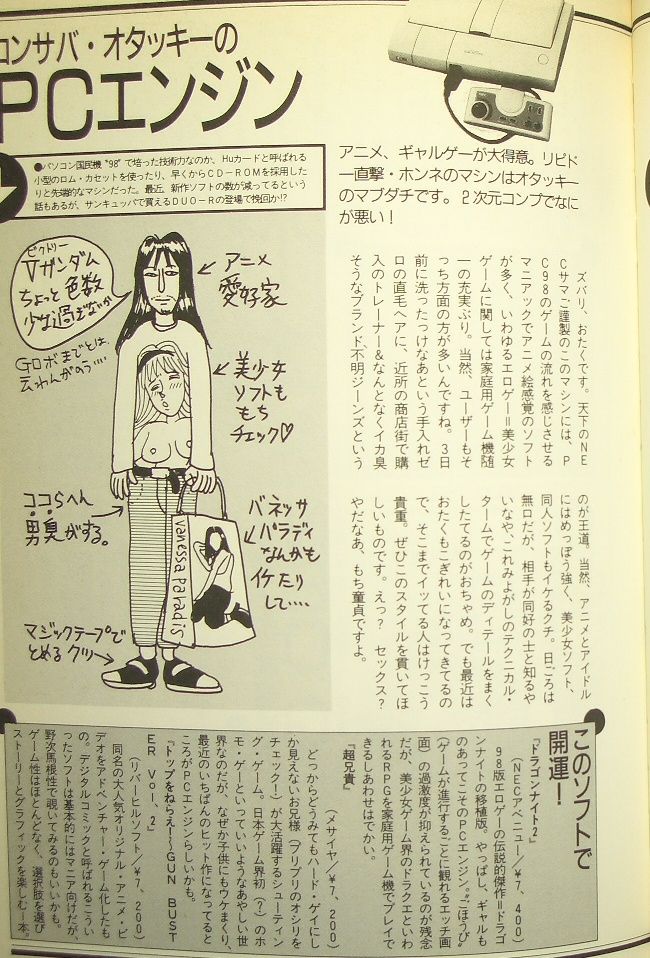 コンサバ・オタッキーの
PCエンジン
●パソコン国民機“98”で培った技術力なのか、Huカードと呼ばれる
小型のロム・カセットを使ったり、早くからCD−ROMを採用した
りと先端的なマシンだった。最近、新作ソフトの数が減ってるという
話もあるが、サンキュッパで買えるDUO−Rの登場で挽回か!?
アニメ、ギャルゲーが大得意。リビド
ー直撃・ホンネのマシンはオタッキー
のマブダチです。2次元コンプでなに
が悪い！
ビクトリー
Vガンダム
ちょっと色数
少な過ぎないか
Gロボまでとは、
云わんがのう・・・・
アニメ
愛好家
美少女
ソフトも
もち
チェック♡
ココらへん
男臭がする。
バネッサ
パラディ
なんかも
イケたり
して・・・・
vanessa paradis
マジックテープで
とめるクツ
ズバリ、おたくです。天下のNE
Cサマご謹製のこのマシンには、P
C98のゲームの流れを感じさせる
マニアックでアニメ絵感覚のソフト
が多く、いわゆるエロゲー＝美少女
ゲームに関しては家庭用ゲーム機随
一の充実ぶり。当然、ユーザーもそ
っち方面の方が多いんですね。3日
前に洗ったっけなあという手入れゼ
ロの直毛ヘアに、近所の商店街で購
入のトレーナー＆なんとなくイカ臭
そうなブランド不明ジーンズという
のが王道。当然、アニメとアイドル
にはめっぽう強く、美少女ソフト、
同人ソフトもイケるクチ。日ごろは
無口だが、相手が同好の士と知るや
いなや、これみよがしのテクニカル・
タームでゲームのディテールをまく
したてるのがおちゃめ。でも最近は
おたくもこぎれいになってきてるの
で、そこまでイッてる人はけっこう
貴重。ぜひこのスタイルを貫いてほ
しいものです。えっ？　セックス？
やだなあ、もち童貞ですよ。
このソフトで
開運！
『ドラゴンナイト2』
（NECアベニュー/¥7,400）
98版エロゲーの伝説的傑作＝ドラゴ
ンナイトの移植版。やっぱし、ギャルも
のあってこそのPCエンジン。“ごほうび”
（ゲームが進行するごとに観れるエッチ画
面）の過激度が抑えられているのが残念
だが、美少女ゲーム界のドラクエといわ
れるRPGを家庭用ゲーム機でプレイで
きるしあわせはでかい。
『超兄貴』
（メサイヤ/¥7,200）
どっからどうみてもハード・ゲイにし
か見えないお兄様（プリプリのオシリを
チェック！）が大活躍するシューティン
グ・ゲーム。日本ゲーム界初（？）のホ
モ・ゲーといっていいようなあやしい世
界なのだが、なぜか子供にもウケまくり、
最近のいちばんのヒット作になってると
ころがPCエンジンらしいかも。
『トップをねらえ！〜GUN BUST
ER Vol.2』
（リバーヒルソフト/¥7,200）
同名の大人気オリジナル・アニメ・ビ
デオをアドベンチャー・ゲーム化したも
の。デジタルコミックと呼ばれるこうい
ったソフトは基本的にはマニア向けだが、
野次馬根性で覗いてみるのもいいかも。
ゲーム性はほとんどなく、選択肢を選び
ストーリーとグラフィックを楽しむ一本。